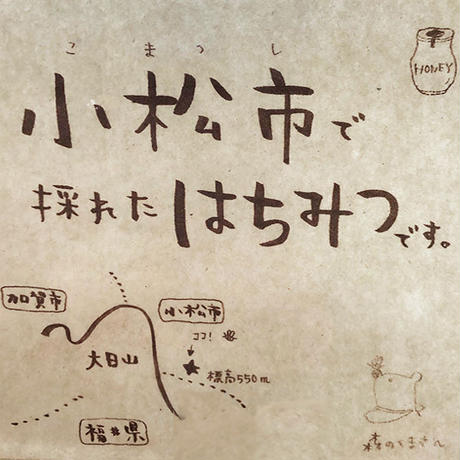 こまつし
HONEY
小松市で
採れたはちみつです。
加賀市
小松市
ココ!
大日山
標高550m
福井県
森のくまさん